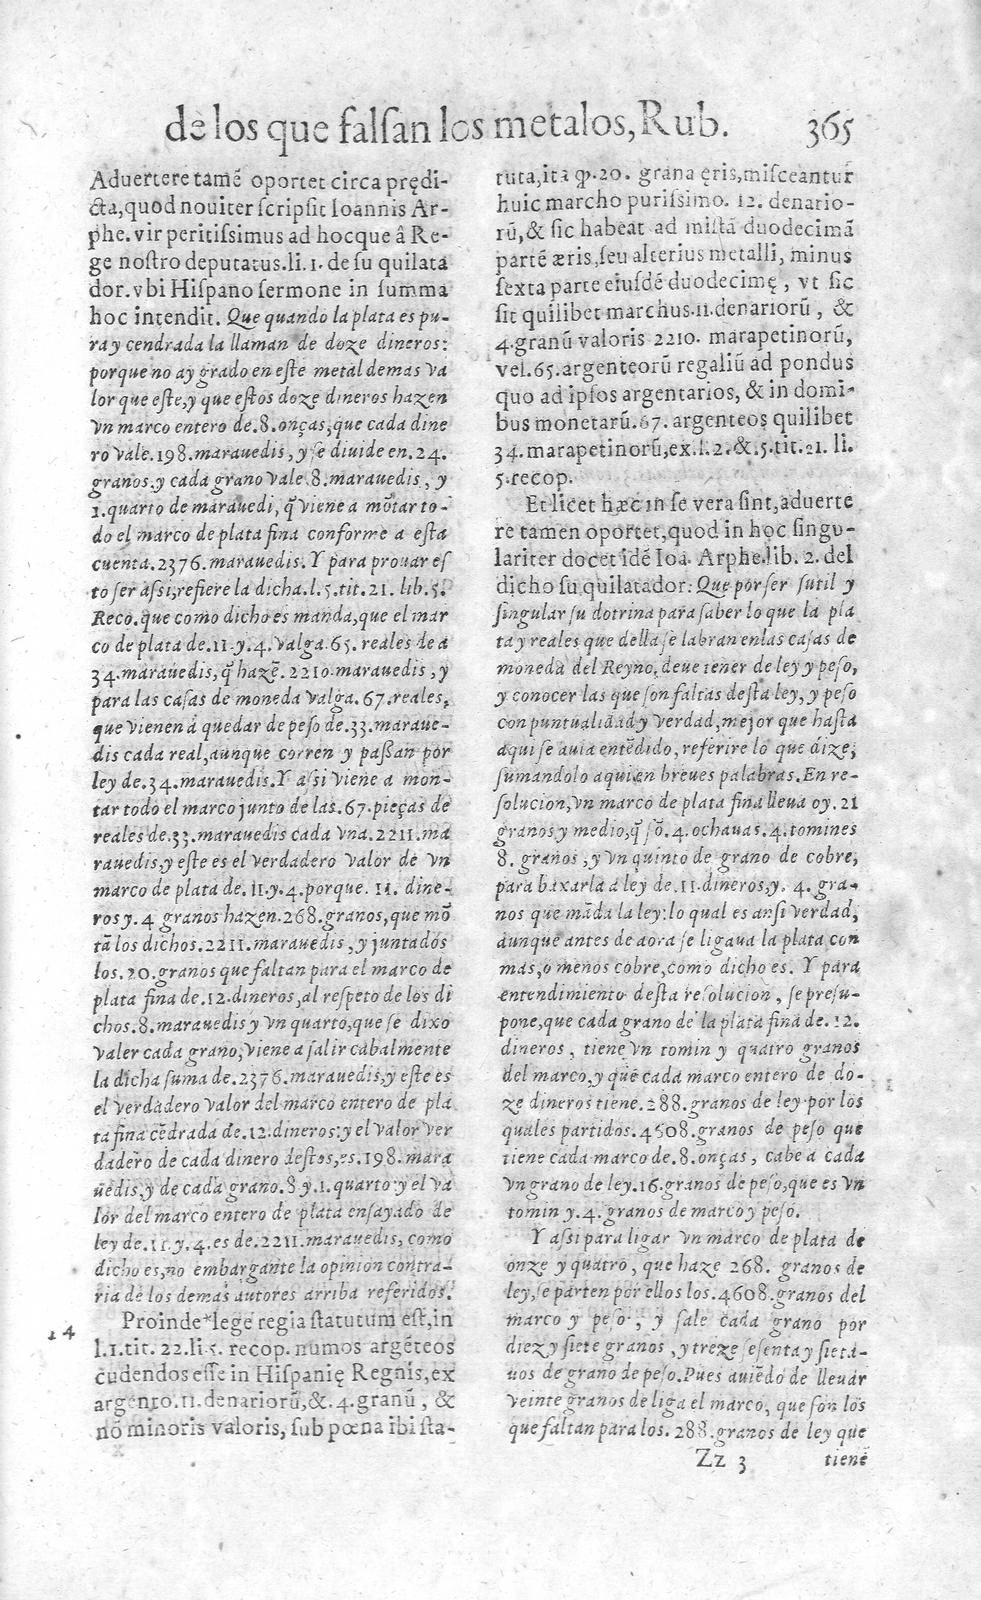 de los que falsan los metalos, Rub. 365
Aduertere tamẽ oportet circa prędi-
cta, quod nouiter scripsit Ioannis Ar-
phe. vir peritissimus ad hocque â Re-
ge nostro deputatus. li. 1. de su quilata
dor. vbi Hispano sermone in summa
hoc intendit. Que quando la plata es pu-
ra y cendrada la llaman de doze dineros:
porque no ay grado en este metal de mas va
lor que este, y que estos doze dineros hazen
vn marco entero de. 8. onças, que cada dine
ro vale. 198. marauedis, y se divide en. 24.
granos. y cada grano vale. 8. marauedis, y
1. quarto de marauedi, q̃ viene a mõtar to-
do el marco de plata fina conforme a esta
cuenta. 2376. marauedis. Y para prouar es
to ser assi, refiere la dicha. l. 5. tit. 21. lib. 5.
Reco. que como dicho es manda, que el mar
co de plata de. 11. y. 4. valga. 65. reales de a
34. marauedis, q̃ hazẽ. 2210. marauedis, y
para las casas de moneda valga. 67. reales,
que vienen a quedar de peso de. 33. maraue-
dis cada real, aunque corren y passan por
ley de. 34. marauedis. Y assi viene a mon-
tar todo el marco junto de las. 67. pieças de
reales de. 33. marauedis cada vna. 2211. ma
rauedis, y este es el verdadero valor de vn
marco de plata de. 11. y. 4. porque. 11. dine-
ros y. 4 granos hazen. 268. granos, que mõ
tã los dichos. 2211. marauedis, y juntados
los. 20. granos que faltan para el marco de
plata fina de. 12. dineros, al respeto de los di
chos. 8. marauedis y vn quarto, que se dixo
valer cada grano, viene a salir cabalmente
la dicha suma de. 2376. marauedis, y este es
el verdadero valor del marco entero de pla
ta fina cẽdrada de. 12. dineros: y el valor ver
dadero de cada dinero destos, es. 198. mara
uedis, y de cada grano. 8 y. 1. quarto: y el va
lor del marco entero de plata ensayado de
ley de. 11. y. 4. es de. 2211. marauedis, como
dicho es, no embargante la opinion contra-
ria de los demas autores arriba referidos.
14
Proinde * lege regia statutum est, in
l. 1. tit. 22. li. 5. recop. numos argẽteos
cudendos esse in Hispanię Regnis, ex
argento. 11. denariorũ, &. 4. granũ, &
nõ minoris valoris, sub pœna ibi sta-
tuta, ita ꝙ. 20. grana ęris, misceantur
huic marcho purissimo. 12. denario-
rũ, & sic habeat ad mistã duodecimã
partẽ æris, seu alterius metalli, minus
sexta parte eiusdẽ duodecimę, vt sic
sit quilibet marchus. 11. denariorũ, &
4. granũ valoris 2210. marapetinorũ,
vel. 65. argenteorũ regaliũ ad pondus
quo ad ipsos argentarios, & in domi-
bus monetarũ. 67. argenteos quilibet
34. marapetinorũ, ex. l. 2. &. 5. tit. 21. li.
5. recop.
Et licet hæc in se vera sint, aduerte
re tamen oportet, quod in hoc singu-
lariter docet idẽ Ioã. Arphe. lib. 2. del
dicho su quilatador: Que por ser sutil y
singular su dotrina para saber lo que la pla
ta y reales que della se labran en las casas de
moneda del Reyno, deue tener de ley y peso,
y conocer las que son faltas desta ley, y peso
con puntualidad y verdad, mejor que hasta
aqui se auia entẽdido, referire lo que dize,
sumandolo aqui en breues palabras. En re-
solucion, vn marco de plata fina lleua oy. 21
granos y medio, q̃ sõ. 4. ochauas. 4. tomines
8. granos, y vn quinto de grano de cobre,
para baxarla a ley de. 11. dineros, y. 4. gra-
nos que mãda la ley: lo qual es ansi verdad,
aunque antes de aora se ligaua la plata con
mas, o menos cobre, como dicho es. Y para
entendimiento desta resolucion, se presu-
pone, que cada grano de la plata fina de. 12.
dineros, tiene vn tomin y quatro granos
del marco, y que cada marco entero de do-
ze dineros tiene. 288. granos de ley por los
quales partidos. 4508. granos de peso que
tiene cada marco de. 8. onças, cabe a cada
vn grano de ley. 16. granos de peso, que es vn
tomin y. 4. granos de marco y peso.
Y assi para ligar vn marco de plata de
onze y quatro, que haze 268. granos de
ley, se parten por ellos los. 4608. granos del
marco y peso, y sale cada grano por
diez y siete granos, y treze sesenta y sieta-
uos de grano de peso. Pues auiẽdo de lleuar
veinte granos de liga el marco, que son los
que faltan para los. 288. granos de ley que
Zz 3 tienẽ